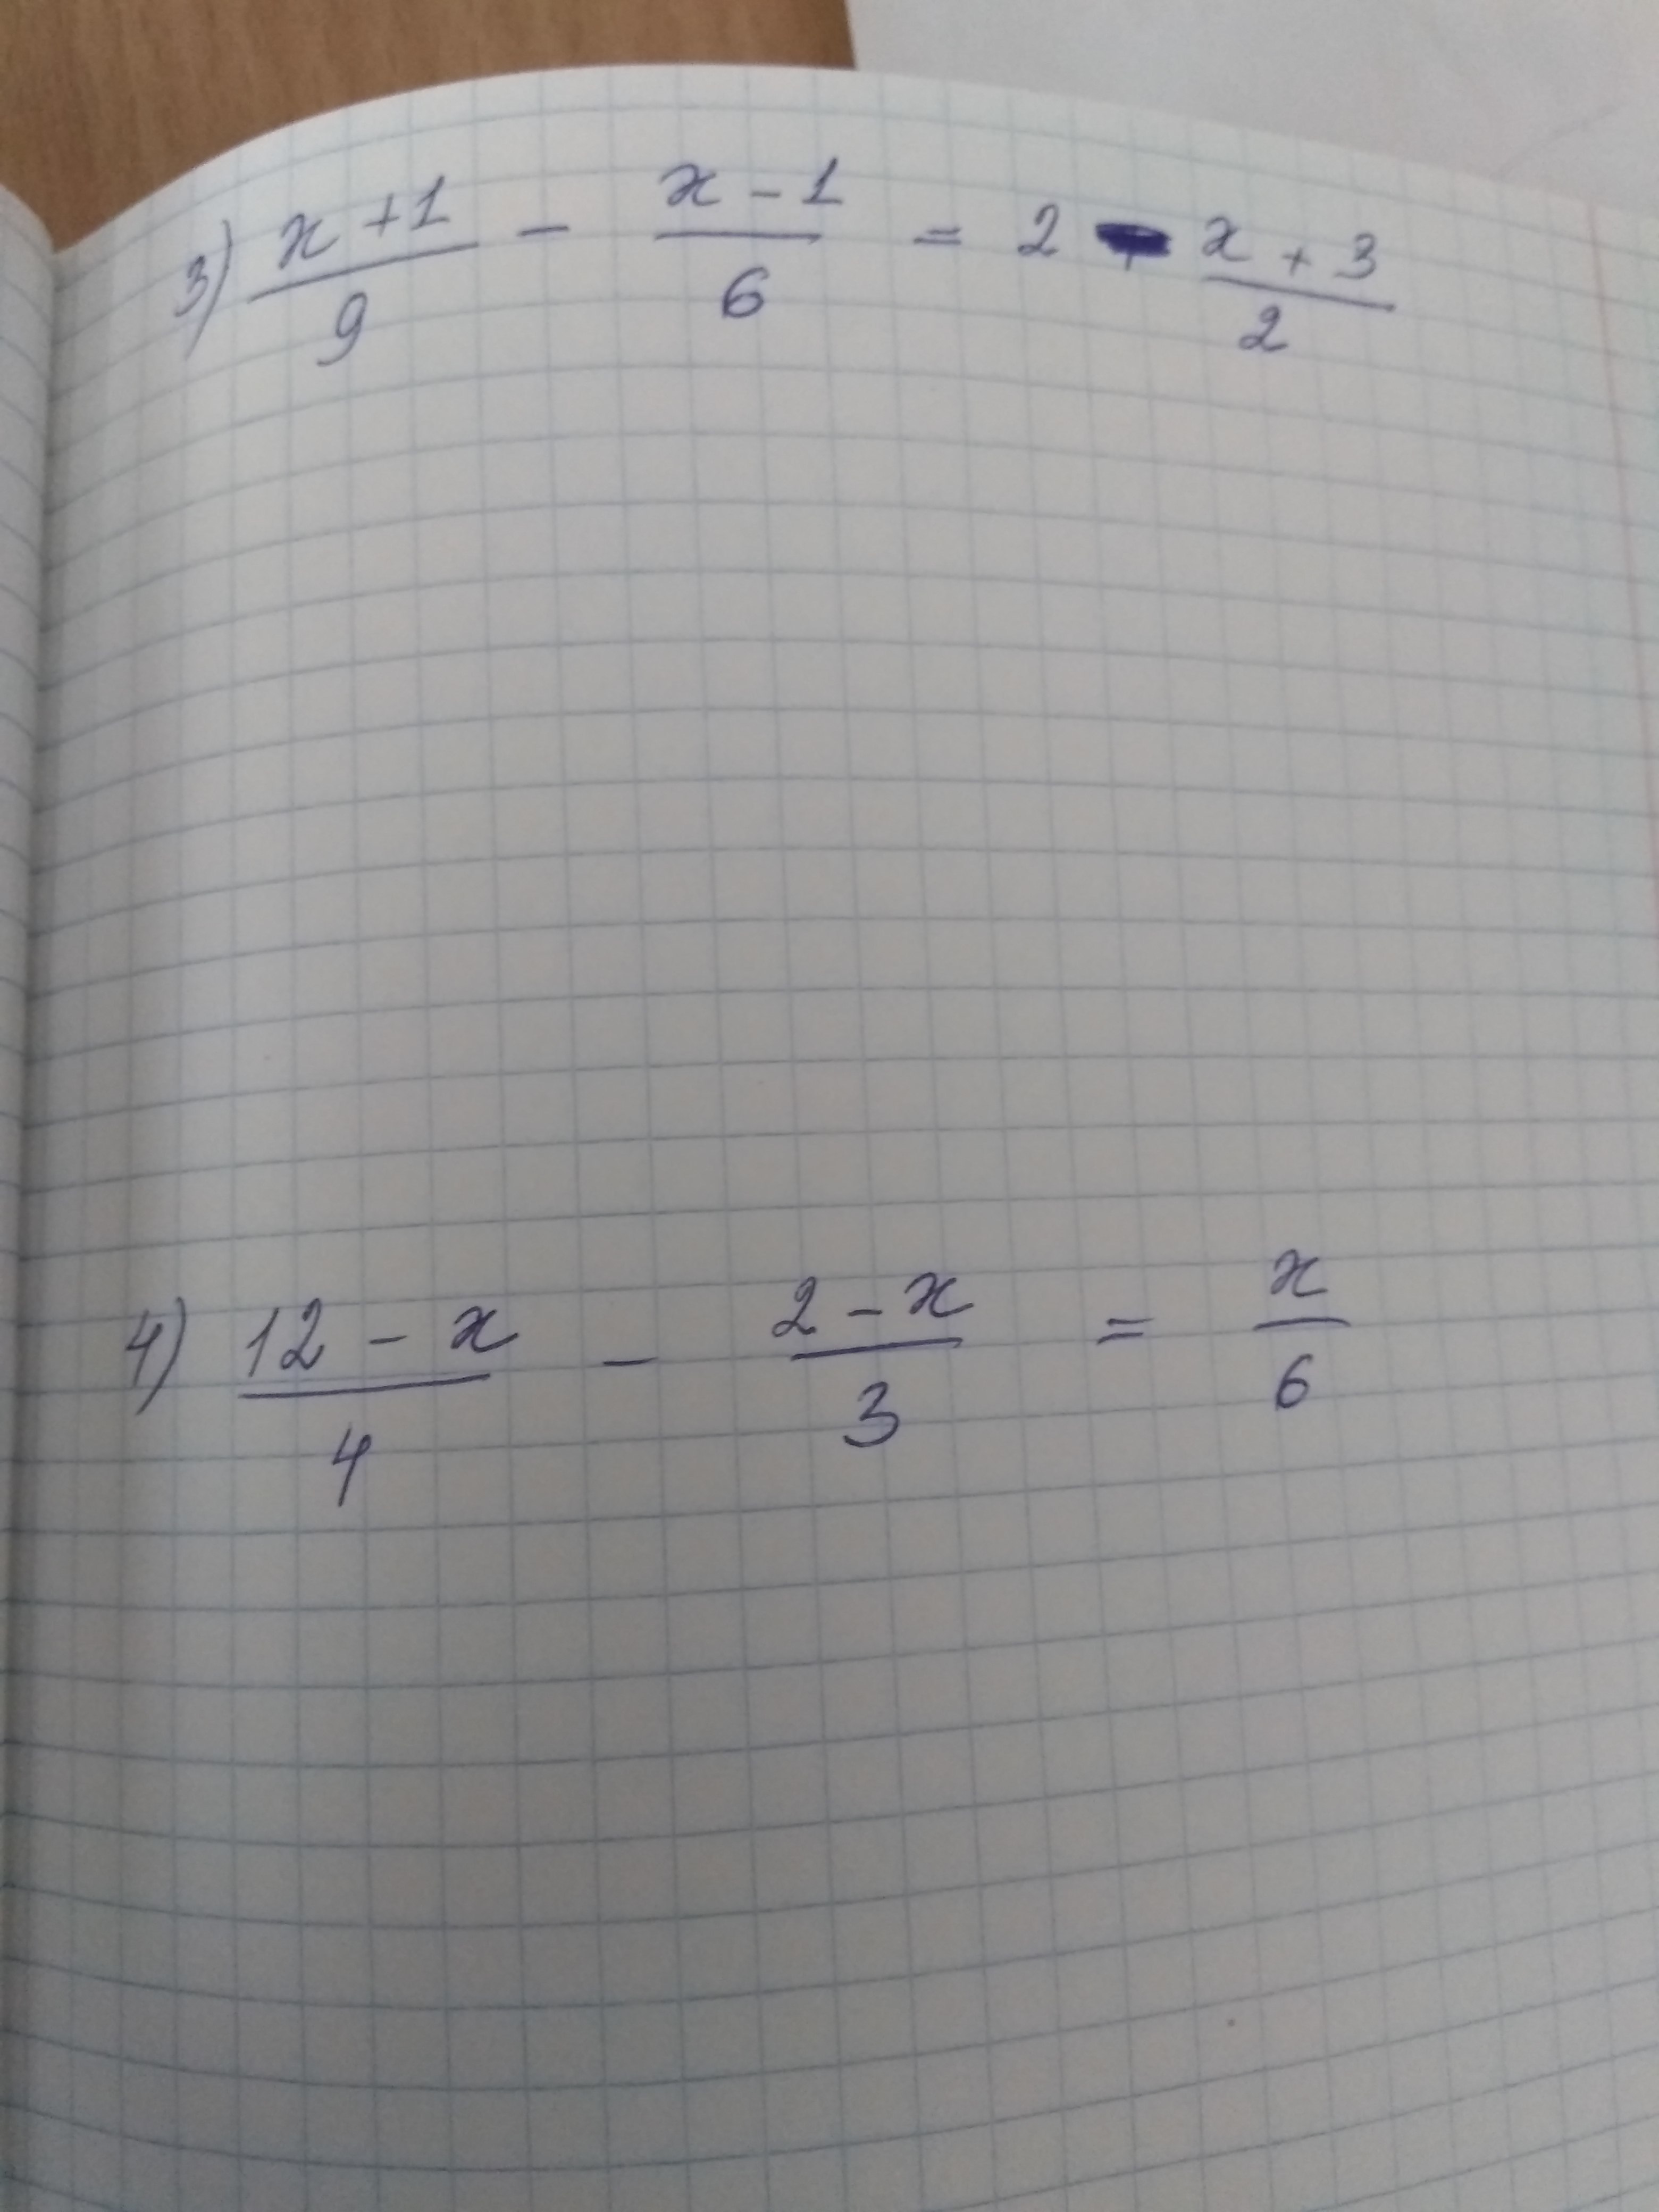 3) (x+1)/9 - (x-1)/6 = 2 - (x+3)/2
4) (12-x)/4 - (2-x)/3 = x/6